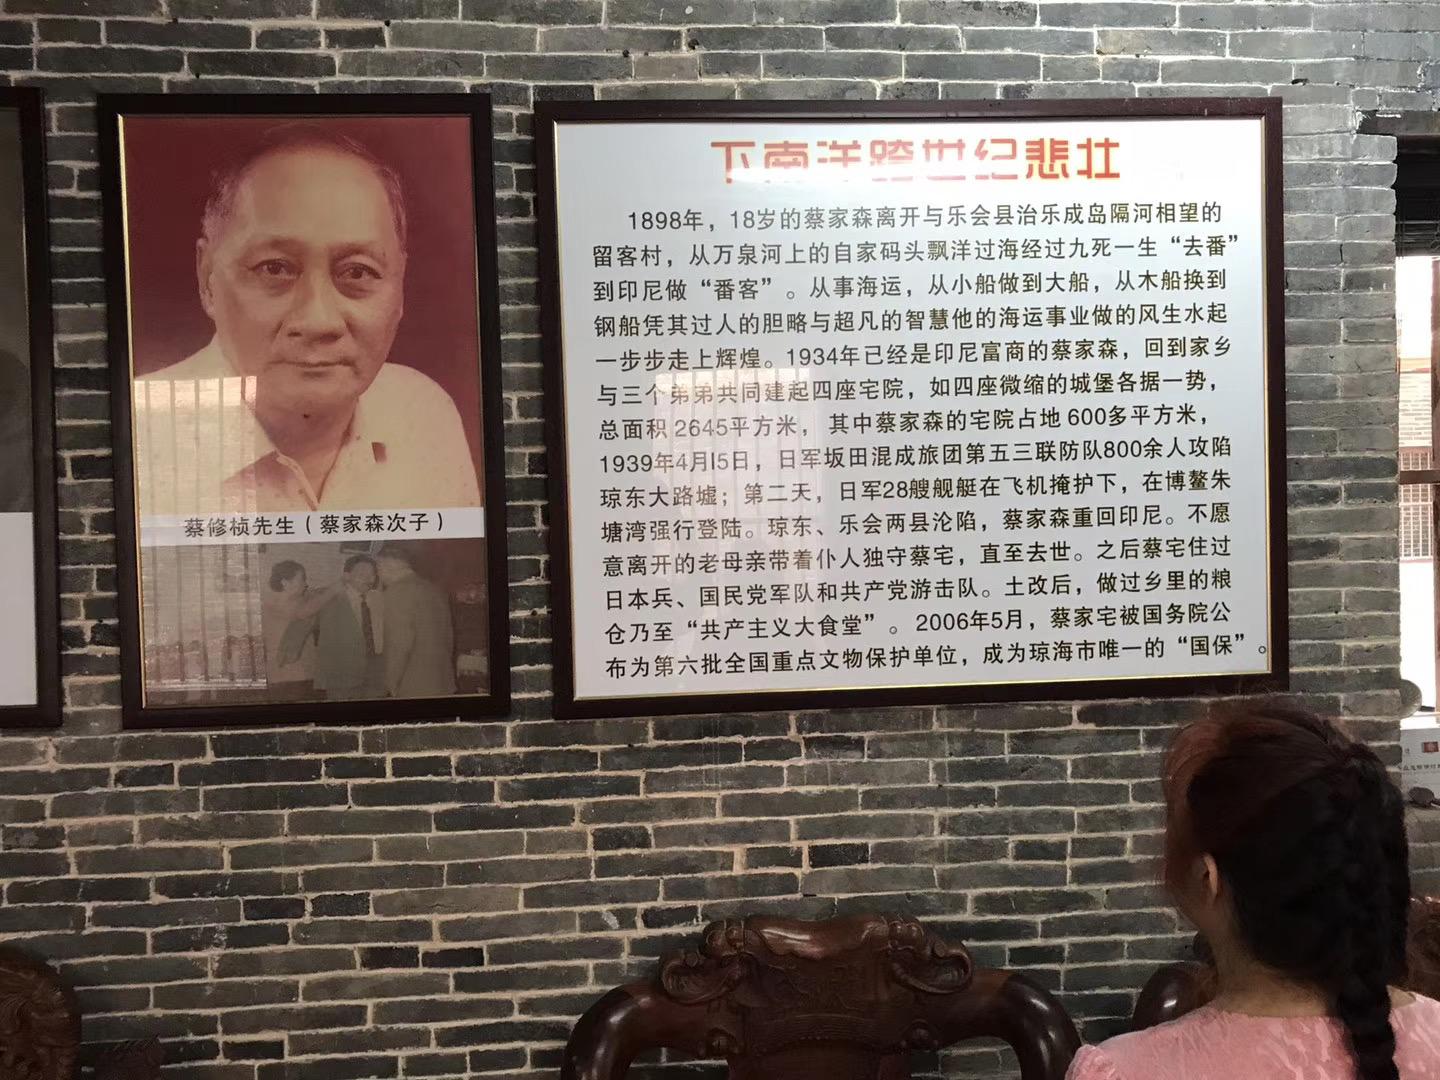 下南洋跨世纪悲壮
1898年，18岁的蔡家森离开与乐会县治乐成岛隔河相望的
留客村，从万泉河上的自家码头飘洋过海经过九死一生“去番”
到印尼做“番客”。从事海运，从小船做到大船，从木船换到
钢船凭其过人的胆略与超凡的智慧他的海运事业做的风生水起
一步步走上辉煌。1934年已经是印尼富商的蔡家森，回到家乡
与三个弟弟共同建起四座宅院，如四座微缩的城堡各据一势，
总面积2645平方米，其中蔡家森的宅院占地600多平方米，
1939年4月15日，日军坂田混成旅团第五三联防队800余人攻陷
琼东大路墟；第二天，日军28艘舰艇在飞机掩护下，在博鳌朱
塘湾强行登陆。琼东、乐会两县沦陷，蔡家森重回印尼。不愿
意离开的老母亲带着仆人独守蔡宅，直至去世。之后蔡宅住过
日本兵、国民党军队和共产党游击队。土改后，做过乡里的粮
仓乃至“共产主义大食堂”。2006年5月，蔡家宅被国务院公
布为第六批全国重点文物保护单位，成为琼海市唯一的“国保”。
蔡修桢先生（蔡家森次子）